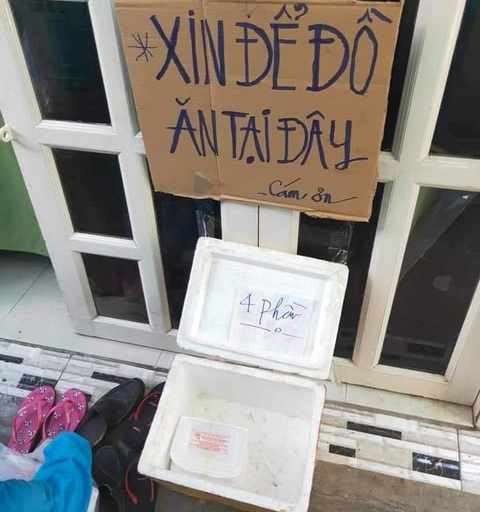 *XIN ĐỂ ĐỒ
ĂN TẠI ĐÂY
Cám ơn
4 phần